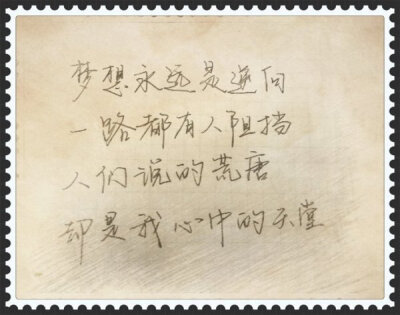 梦想永远是逆向
一路都有人阻挡
人们说的荒唐
却是我心中的天堂